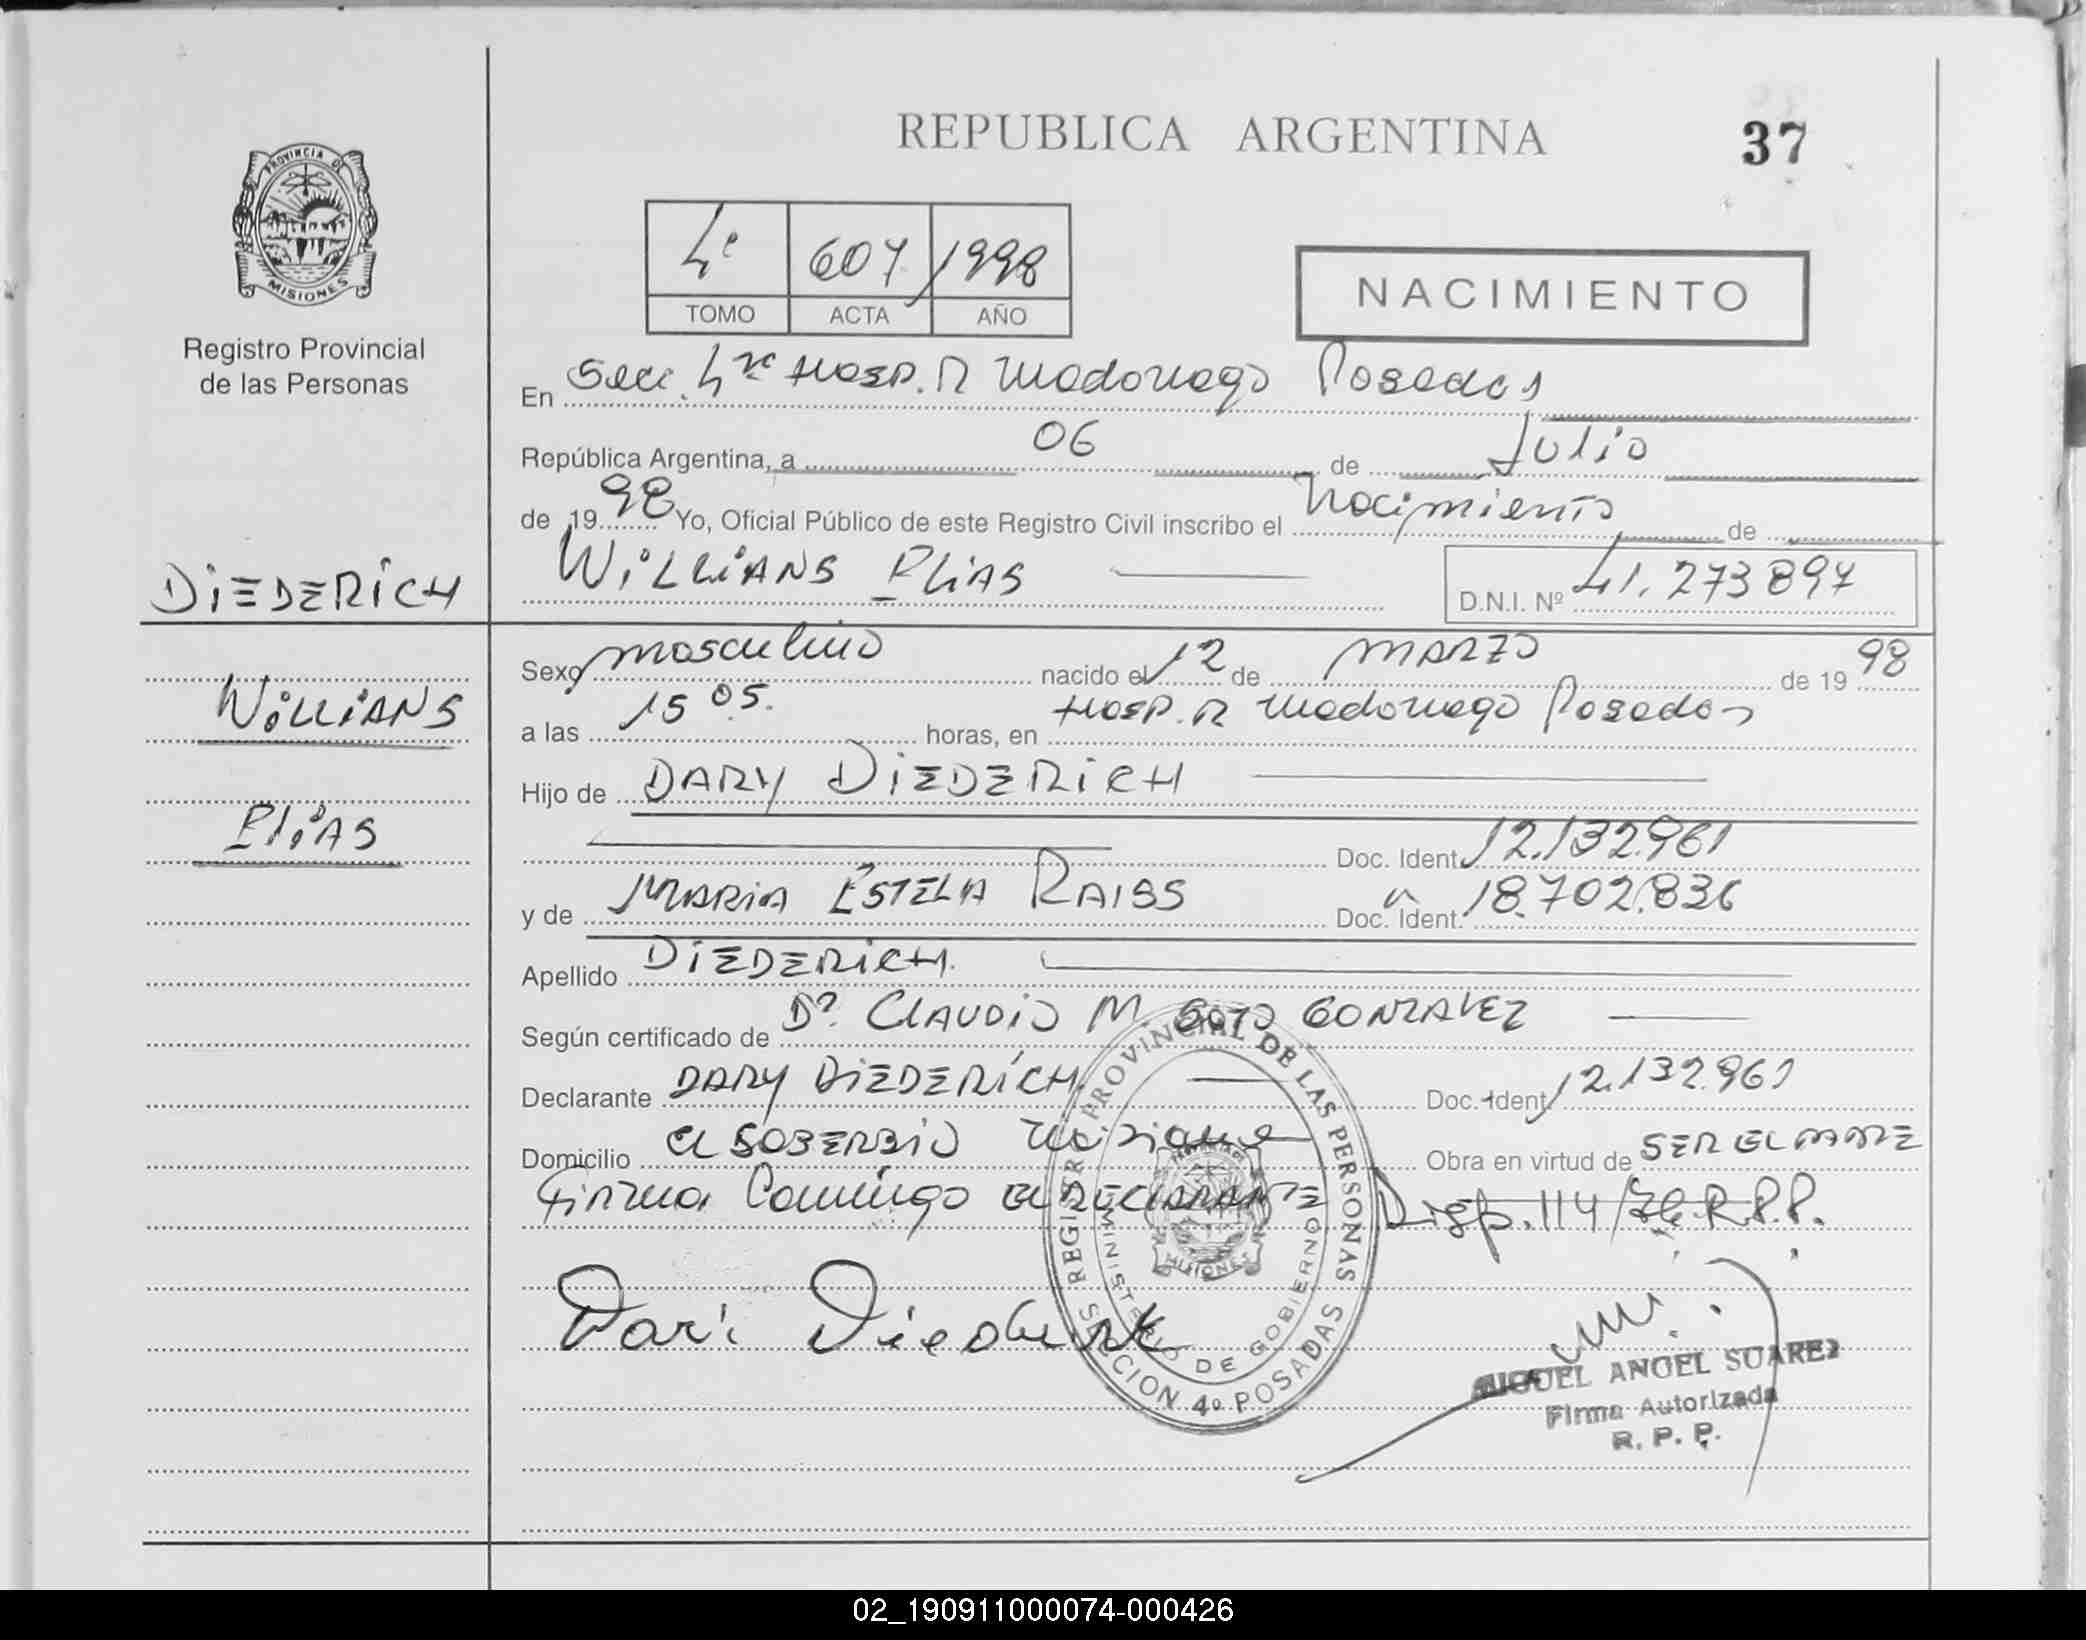 REPUBLICA ARGENTINA
37
PROVINCIA DE
MISIONES
Registro Provincial
de las Personas
4º 607 1998
TOMO ACTA AÑO
NACIMIENTO
En Secc. 4ta Hosp. R Madariaga Posadas
República Argentina, a 06 de Julio
de 1998 Yo, Oficial Público de este Registro Civil inscribo el Nacimiento de
WILLIANS ELIAS D.N.I. Nº 41.273897
DIEDERICH
WILLIANS
ELIAS
Sexo masculino nacido el 12 de MARZO de 1998
a las 15 05. horas, en Hosp. R Madariaga Posadas
Hijo de DARY DIEDERICH
Doc. Ident. 12.132.961
y de MARIA ESTELA RAISS Doc. Ident. 18.702.836
Apellido DIEDERICH.
Según certificado de Dr. CLAUDIO M. SOTO GONZALEZ
Declarante DARY DIEDERICH Doc. Ident. 12.132.961
Domicilio EL SOBERBIO Misiones Obra en virtud de SER EL PADRE
Firma Conmigo EL DECLARANTE Disp. 114/76.R.P.P.
Dari Diederich
REGISTRO PROVINCIAL DE LAS PERSONAS
MINISTERIO DE GOBIERNO
MISIONES
SECCION 4º POSADAS
MIGUEL ANGEL SUAREZ
Firma Autorizada
R. P. P.
02_190911000074-000426